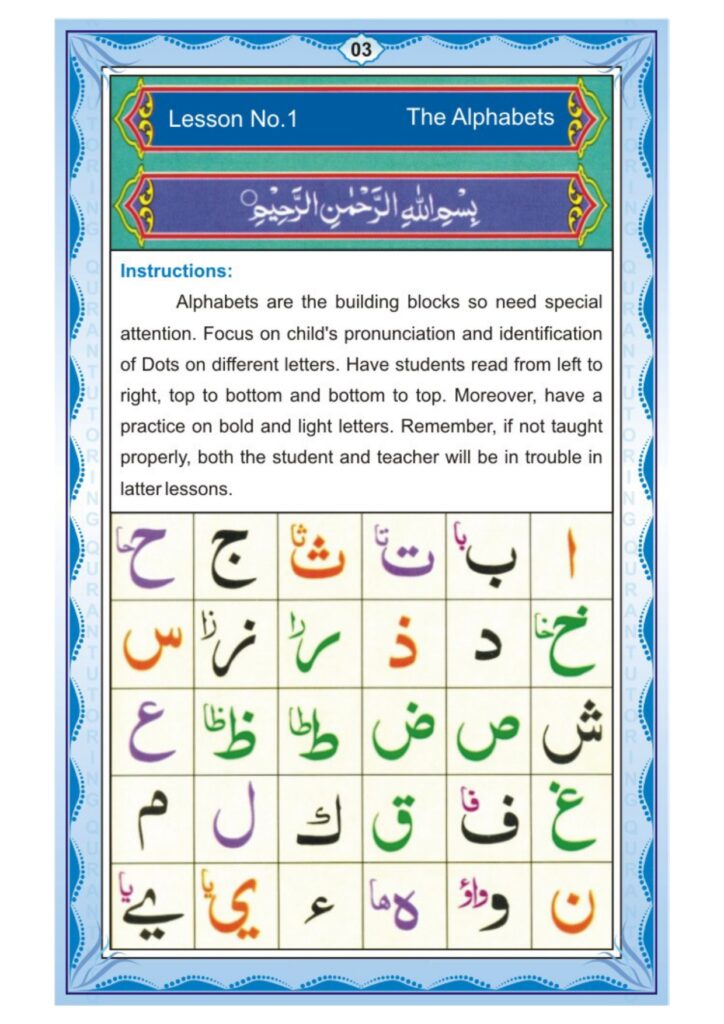 03
Lesson No.1 The Alphabets
بِسْمِ اللهِ الرَّحْمٰنِ الرَّحِيْمِ
Instructions:
Alphabets are the building blocks so need special
attention. Focus on child's pronunciation and identification
of Dots on different letters. Have students read from left to
right, top to bottom and bottom to top. Moreover, have a
practice on bold and light letters. Remember, if not taught
properly, both the student and teacher will be in trouble in
latter lessons.
ا ب با ت تا ث ثا ج ح حا
خ خا د ذ ر را ز زا س
ش ص ض ط طا ظ ظا ع
غ ف فا ق ك ل م
ن و واؤ ه ها ء ي يا ے يا
QURAN TUTORING QURAN TUTORING QURAN TUTORING